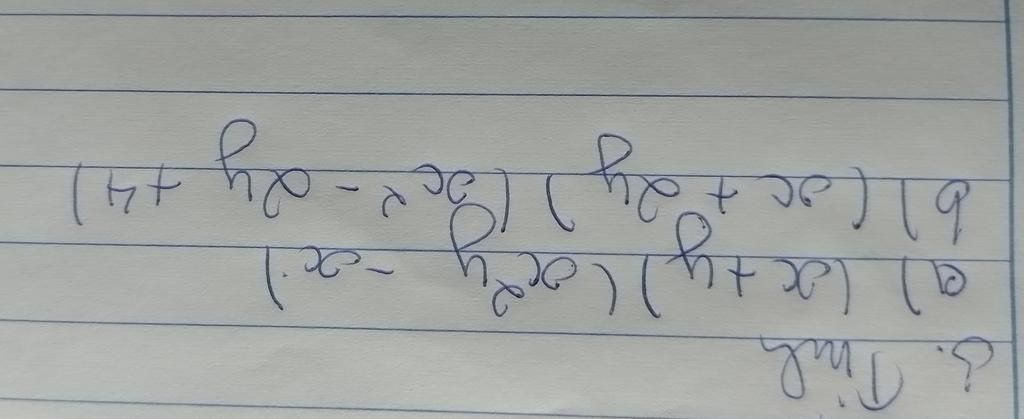 3. Tính
a) (x+y)(x²y - x)
b) (x + 2y)(x² - 2y + 4)